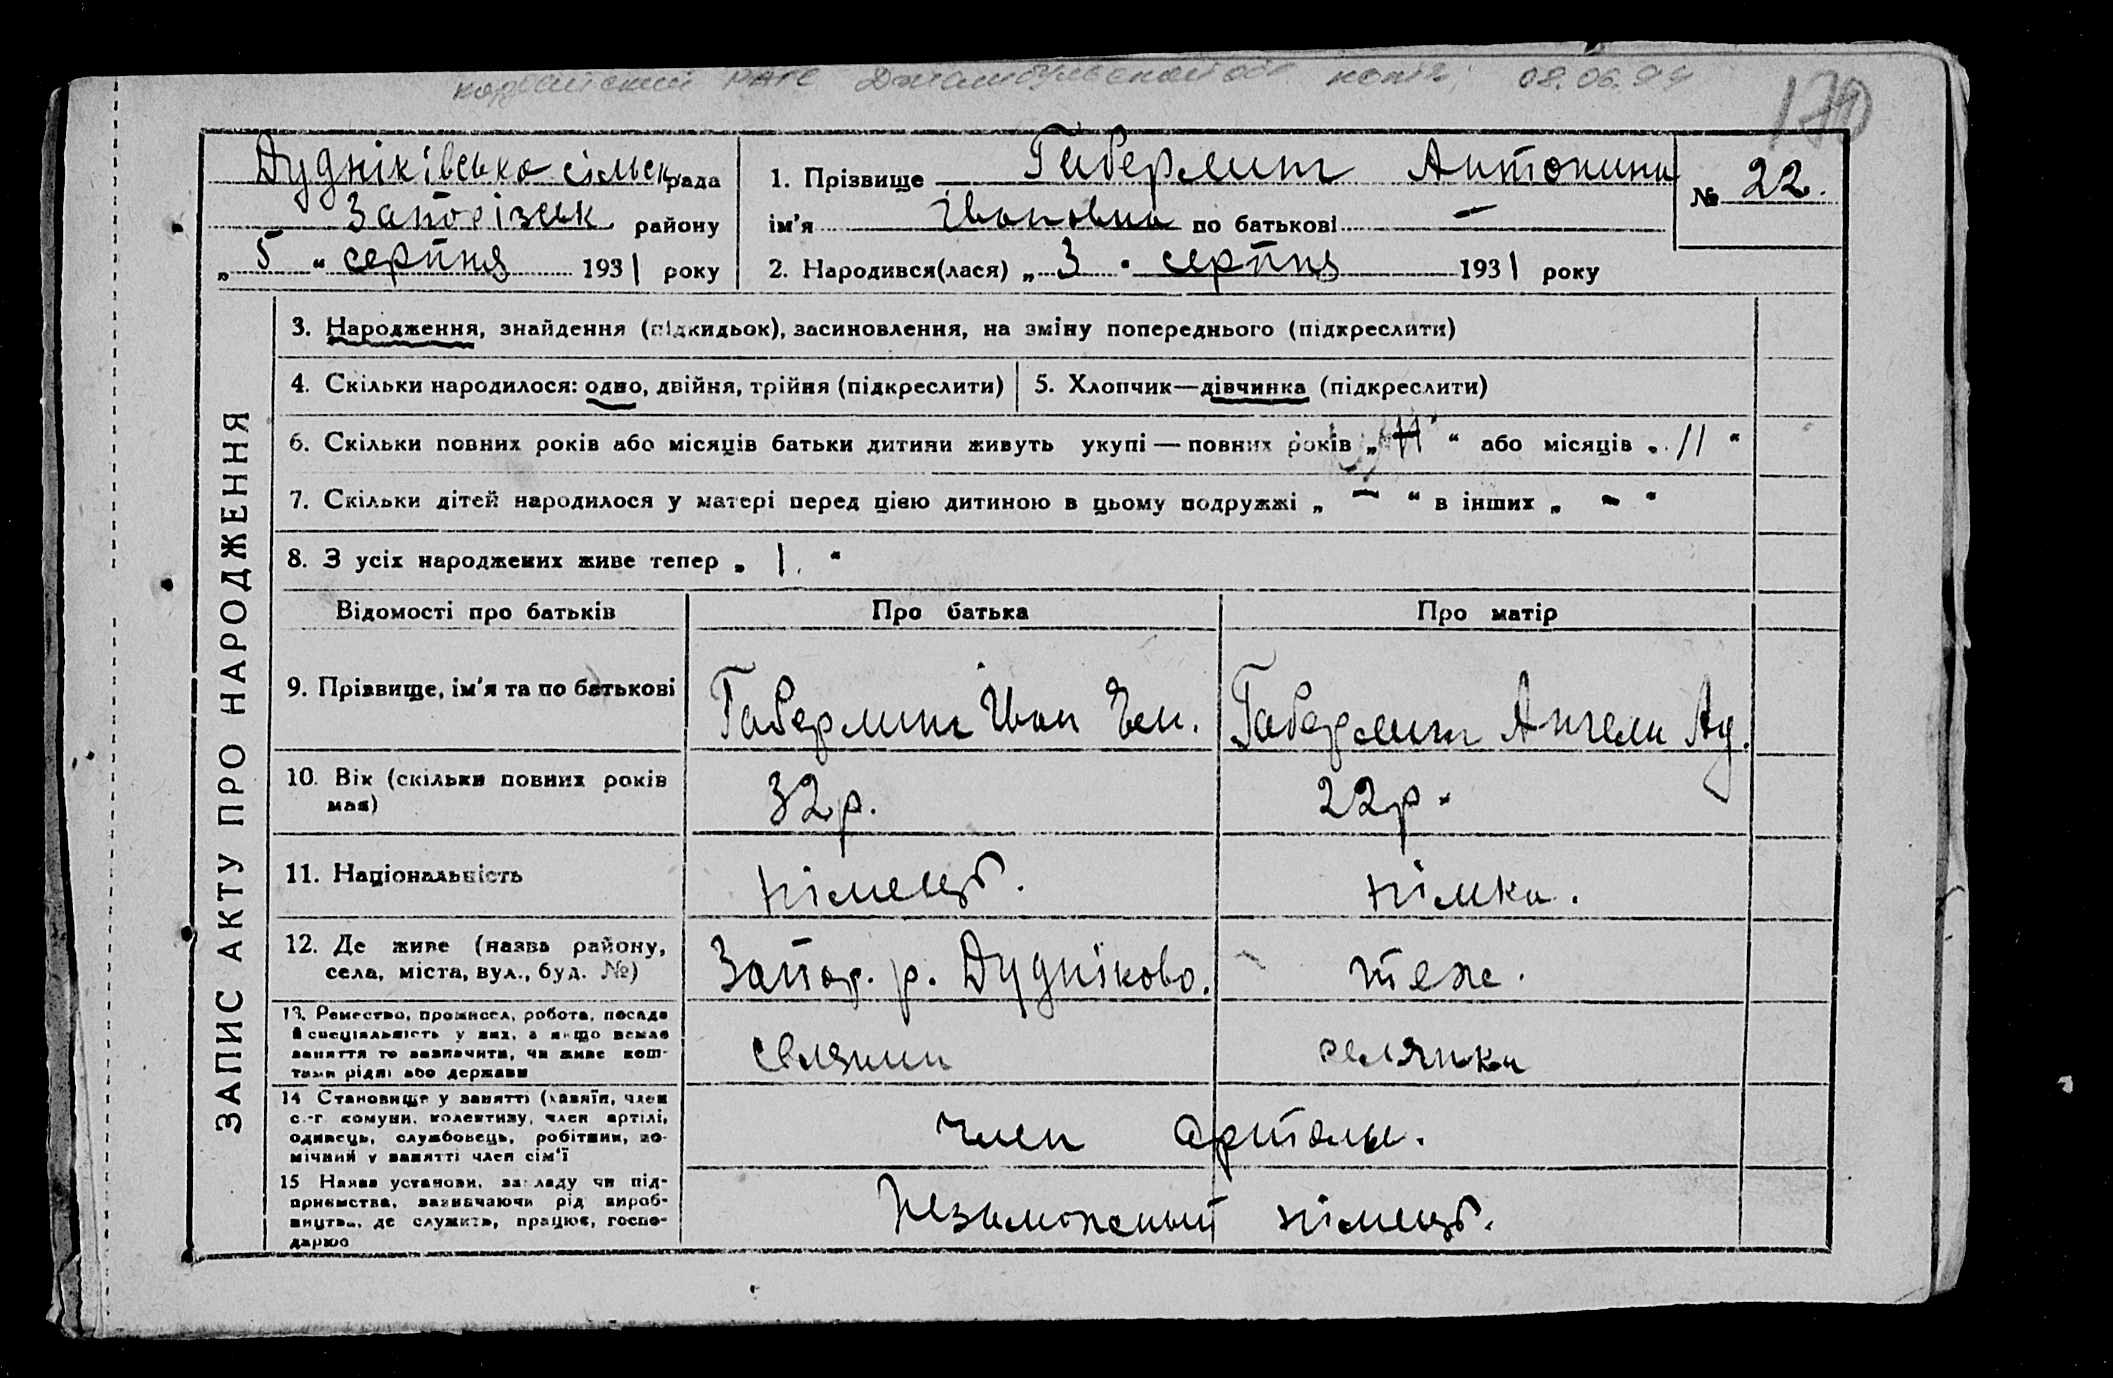 РАГС Джамбульской обл копія 08.06.99
170
Дудніківська сільськ рада
Запорізьк. району
„ 5 “ серпня 1931 року
1. Прізвище Габерлинг Антонина
ім'я Івановна по батькові —
2. Народився(лася) „ 3 “ серпня 1931 року
№ 22.
ЗАПИС АКТУ ПРО НАРОДЖЕННЯ
3. Народження, знайдення (підкидьок), засиновлення, на зміну попереднього (підкреслити)
4. Скільки народилося: одно, двійня, трійня (підкреслити)
5. Хлопчик—дівчинка (підкреслити)
6. Скільки повних років або місяців батьки дитини живуть укупі — повних років „ 11 “ або місяців „ 11 “
7. Скільки дітей народилося у матері перед цією дитиною в цьому подружжі „ — “ в інших „ — “
8. З усіх народжених живе тепер „ 1. “
Відомості про батьків
Про батька
Про матір
9. Прізвище, ім'я та по батькові
Габерлинг Иван
Габерлинг Ангела Ад.
10. Вік (скільки повних років
має)
32р.
22р.
11. Національність
німець.
німка.
12. Де живе (назва району,
села, міста, вул., буд. №)
Запор. р. Дудніково.
теж.
13. Ремество, промисел, робота, посада
й спеціяльність у них, а якщо немає
заняття то зазначити, чи живе кош-
тами рідні або держави
селянин
селянка
14 Становище у занятті (хазяїн, член
с.-г. комуни, колективу, член артілі,
одинець, службовець, робітник, по-
мічний у занятті член сім'ї
член артели.
15 Назва установи, закладу чи під-
приємства, зазначаючи рід вироб-
ництва, де служить, працює, госпо-
дарює
Незаможный німець.